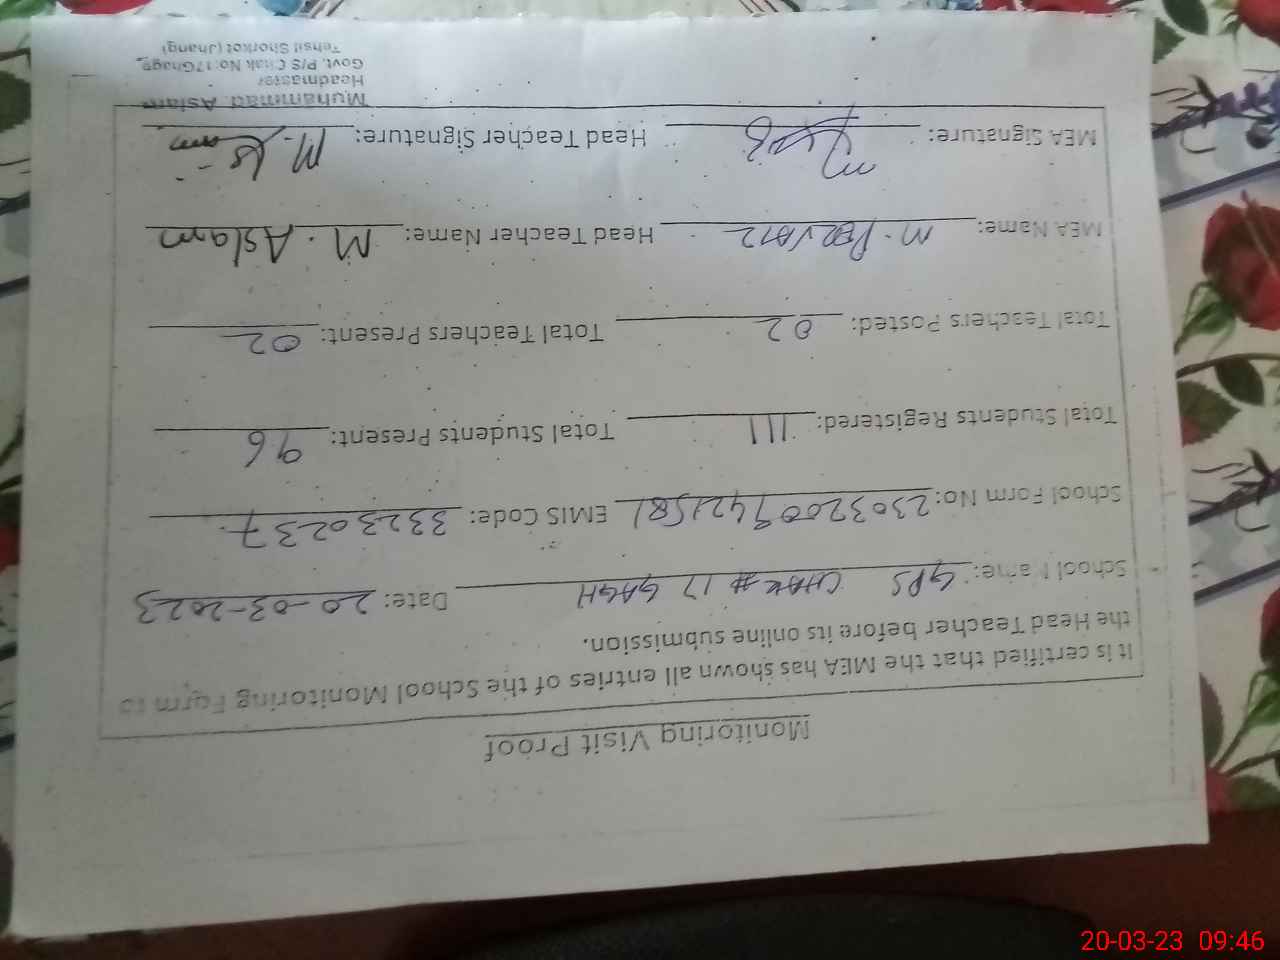 Monitoring Visit Proof
It is certified that the MEA has shown all entries of the School Monitoring Form to
the Head Teacher before its online submission.
School Name: GPS CHAK # 17 GAGH Date: 20-03-2023
School Form No: 23032009421581 EMIS Code: 33230237
Total Students Registered: 111 Total Students Present: 96
Total Teachers Posted: 02 Total Teachers Present: 02
MEA Name: M. PERVAIZ Head Teacher Name: M. Aslam
MEA Signature: Head Teacher Signature: M. Aslam
Muhammad Aslam
Headmaster
Govt. P/S Chak No: 17Ghagh
Tehsil Shorkot (Jhang)
20-03-23 09:46